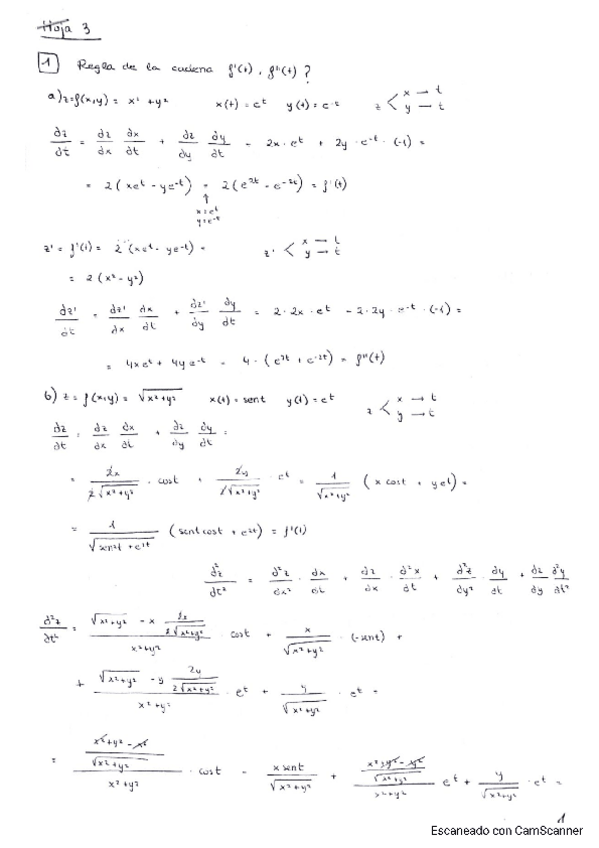 Hoja 3
1 Regla de la cadena f'(t), f''(t)?
a) z = f(x,y) = x² + y² x(t) = e^t y(t) = e^-t z < x → t
y → t
dz/dt = dz/dx dx/dt + dz/dy dy/dt = 2x · e^t + 2y · e^-t · (-1) =
= 2(xe^t - ye^-t) = 2(e^2t - e^-2t) = f'(t)
↑
x = e^t
y = e^-t
z' = f'(t) = 2(xe^t - ye^-t) = z' < x → t
y → t
= 2(x² - y²)
dz'/dt = dz'/dx dx/dt + dz'/dy dy/dt = 2·2x · e^t - 2·2y · e^-t · (-1) =
= 4xe^t + 4ye^-t = 4 · (e^2t + e^-2t) = f''(t)
b) z = f(x,y) = √(x² + y²) x(t) = sent y(t) = e^t z < x → t
y → t
dz/dt = dz/dx dx/dt + dz/dy dy/dt =
= 2x/(2√(x²+y²)) · cost + 2y/(2√(x²+y²)) · e^t = 1/√(x²+y²) (x cost + ye^t) =
= 1/√(sen²t + e^2t) (sent cost + e^2t) = f'(t)
d²z/dt² = d²z/dx² · dx/dt + dz/dx · d²x/dt + d²z/dy² · dy/dt + dz/dy d²y/dt²
d²z/dt² = (√(x²+y²) - x 2x/(2√(x²+y²)))/(x²+y²) · cost + x/√(x²+y²) · (-sent) +
+ (√(x²+y²) - y 2y/(2√(x²+y²)))/(x²+y²) · e^t + y/√(x²+y²) · e^t =
= ((x²+y²-x²)/√(x²+y²))/(x²+y²) · cost - x sent/√(x²+y²) + ((x²+y²-y²)/√(x²+y²))/(x²+y²) e^t + y/√(x²+y²) · e^t =
1
Escaneado con CamScanner